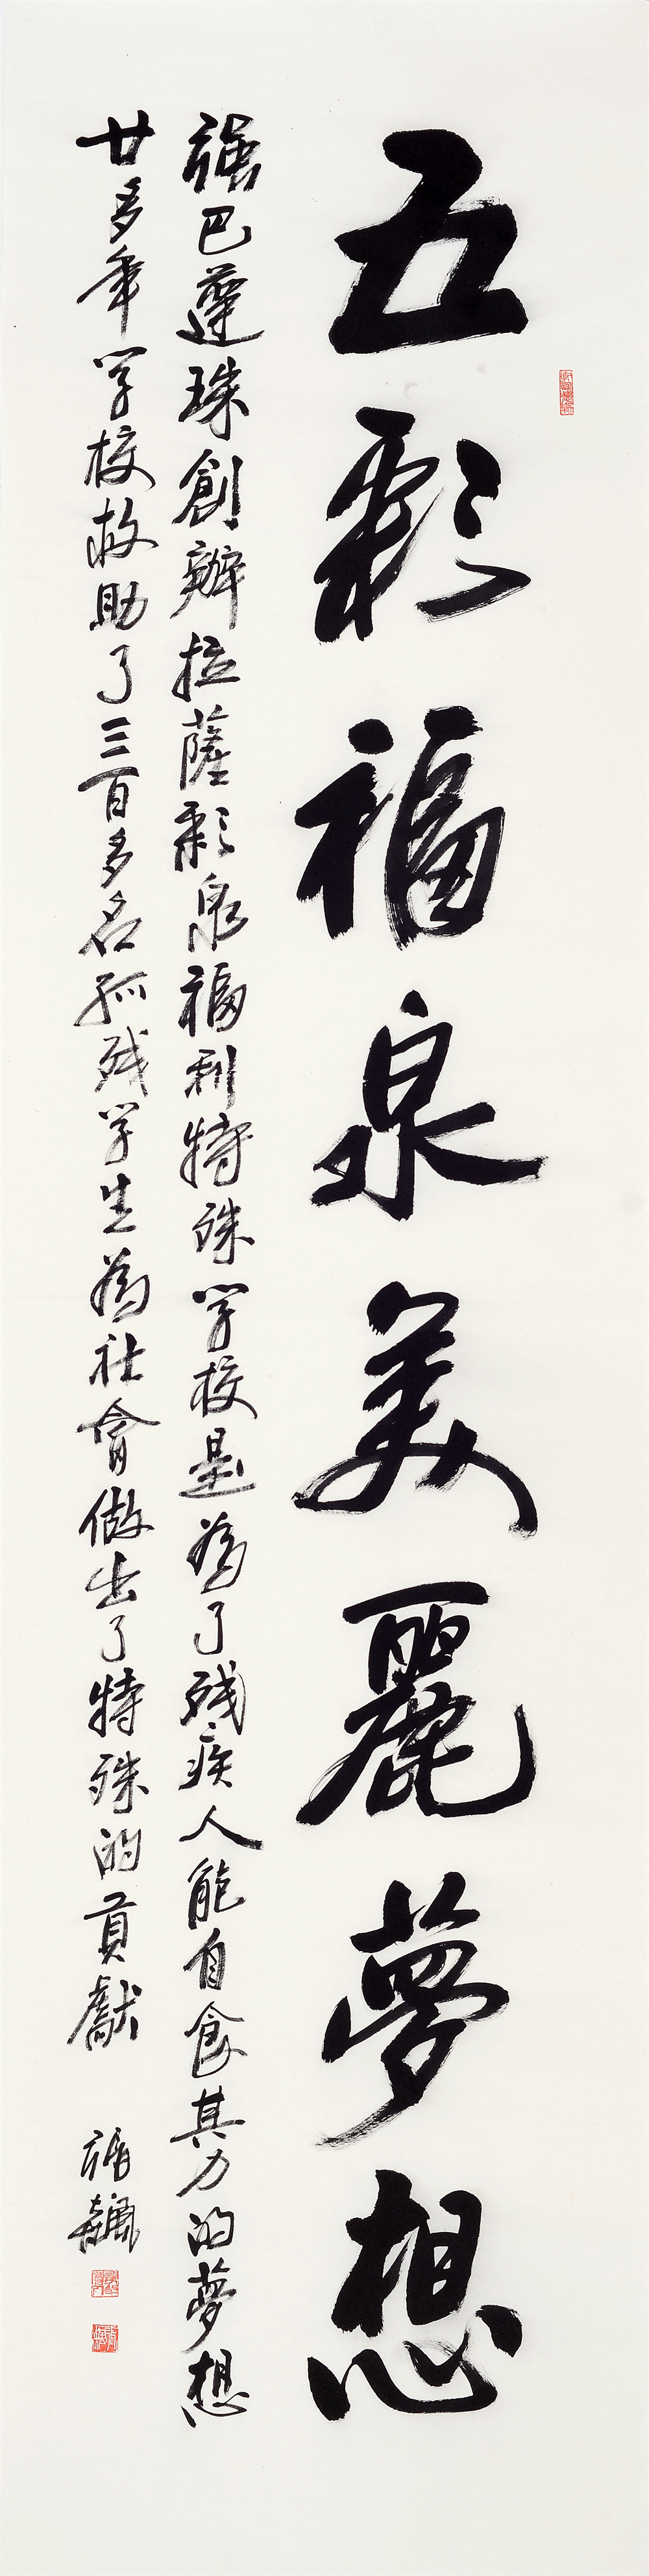 五彩福泉美麗夢想
強巴遵珠創辦拉薩彩泉福利特殊学校是為了殘疾人能自食其力的夢想
廿多年学校救助了三百多名孤殘学生為社會做出了特殊的貢獻